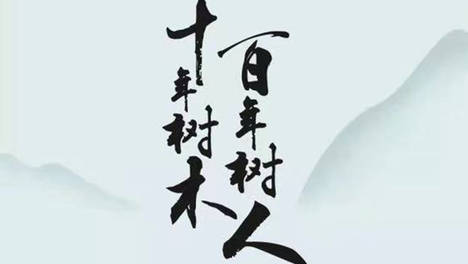 十年树木
百年树人